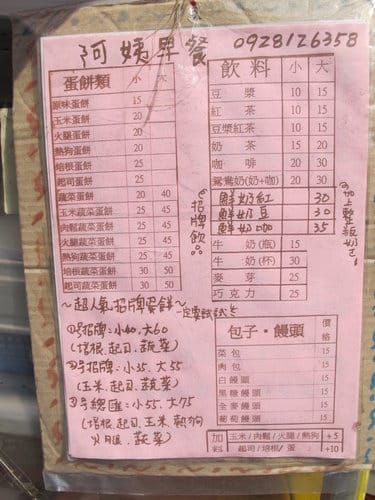 阿姨早餐 0928126358
蛋餅類 小 大
原味蛋餅 15
玉米蛋餅 20
火腿蛋餅 20
熱狗蛋餅 20
培根蛋餅 25
起司蛋餅 25
蔬菜蛋餅 20 40
玉米蔬菜蛋餅 25 45
肉鬆蔬菜蛋餅 25 45
火腿蔬菜蛋餅 25 45
熱狗蔬菜蛋餅 25 45
培根蔬菜蛋餅 30 50
起司蔬菜蛋餅 30 50
~超人氣招牌蛋餅~一定要試試ㄘ
1號招牌:小60、大60
(培根、起司、蔬菜)
2號招牌:小35、大55
(玉米、起司、蔬菜)
3號總匯:小55、大75
(培根、起司、玉米、熱狗
火腿、蔬菜)
飲料 小 大
豆漿 10 15
紅茶 10 15
豆漿紅茶 10 15
奶茶 15 20
咖啡 20 30
鴛鴦奶(奶+咖) 20 30
鮮奶紅 30
鮮奶豆 30
鮮奶咖 35
牛奶(瓶) 15
牛奶(杯) 30
麥芽 25
巧克力 25
招牌飲品
加上整瓶奶ㄛ
包子・饅頭 價格
菜包
肉包
白饅頭
黑糖饅頭
全麥饅頭
葡萄饅頭
加料 玉米/肉鬆/火腿/熱狗 +5
起司/培根/蛋 +10